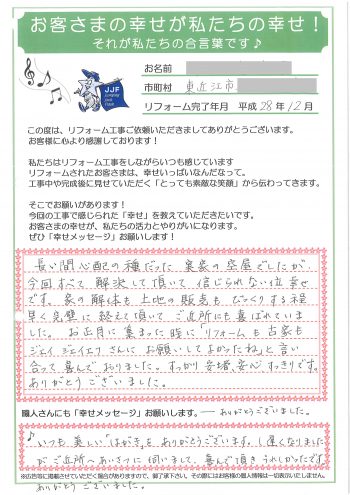 お客さまの幸せが私たちの幸せ！
それが私たちの合言葉です♪
お名前
市町村 東近江市
リフォーム完了年月 平成28年12月
JJF
この度は、リフォーム工事ご依頼いただきましてありがとうございます。
お客様に心より感謝しております！
私たちはリフォーム工事をしながらいつも感じています
リフォームされたお客さまは、幸せいっぱいなんだなって。
工事中や完成後に見せていただく「とっても素敵な笑顔」から伝わってきます。
そこでお願いがあります！
今回の工事で感じられた「幸せ」を教えていただきたいです。
お客さまの幸せが、私たちの活力とやりがいになります。
ぜひ「幸せメッセージ」お願いします！
長い間心配の種だった実家の空屋でしたが
今回すべて解決して頂いて信じられない位幸せ
です。家の解体も土地の販売もびっくりする程
早く完璧に終えて頂いてご近所にも喜ばれていま
した。お正月に集まった時に「リフォームも古家も
ジェイジェイエフさんにお願いしてよかったね」と言い
合って喜んでおりました。すっかり安堵、安心、すっきりです。
ありがとうございました。
職人さんにも「幸せメッセージ」お願いします。—ありがとうございました。
♪いつも美しい「はがき」をありがとうございます。し遅くなりました
がご近所へあいさつに伺いまして、喜んで頂きうれしかったです
※広告等に掲載させていただく場合がありますので、御了承下さい。その際にはお客様の個人情報は一切表示いたしません。
ありがとうございました。